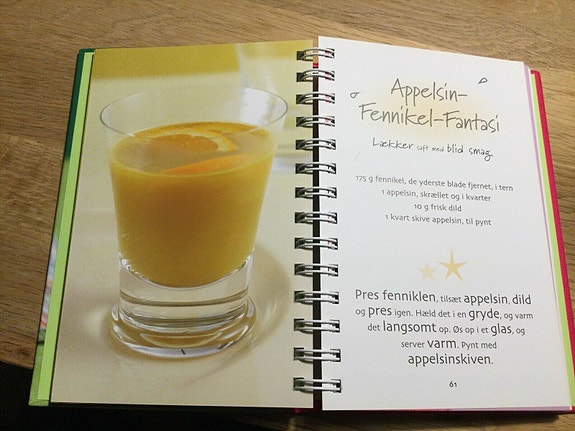 Appelsin-
Fennikel-Fantasi
Lækker saft med blid smag
175 g fennikel, de yderste blade fjernet, i tern
1 appelsin, skrællet og i kvarter
10 g frisk dild
1 kvart skive appelsin, til pynt
Pres fenniklen, tilsæt appelsin, dild
og pres igen. Hæld det i en gryde, og varm
det langsomt op. Øs op i et glas, og
server varm. Pynt med
appelsinskiven.
61